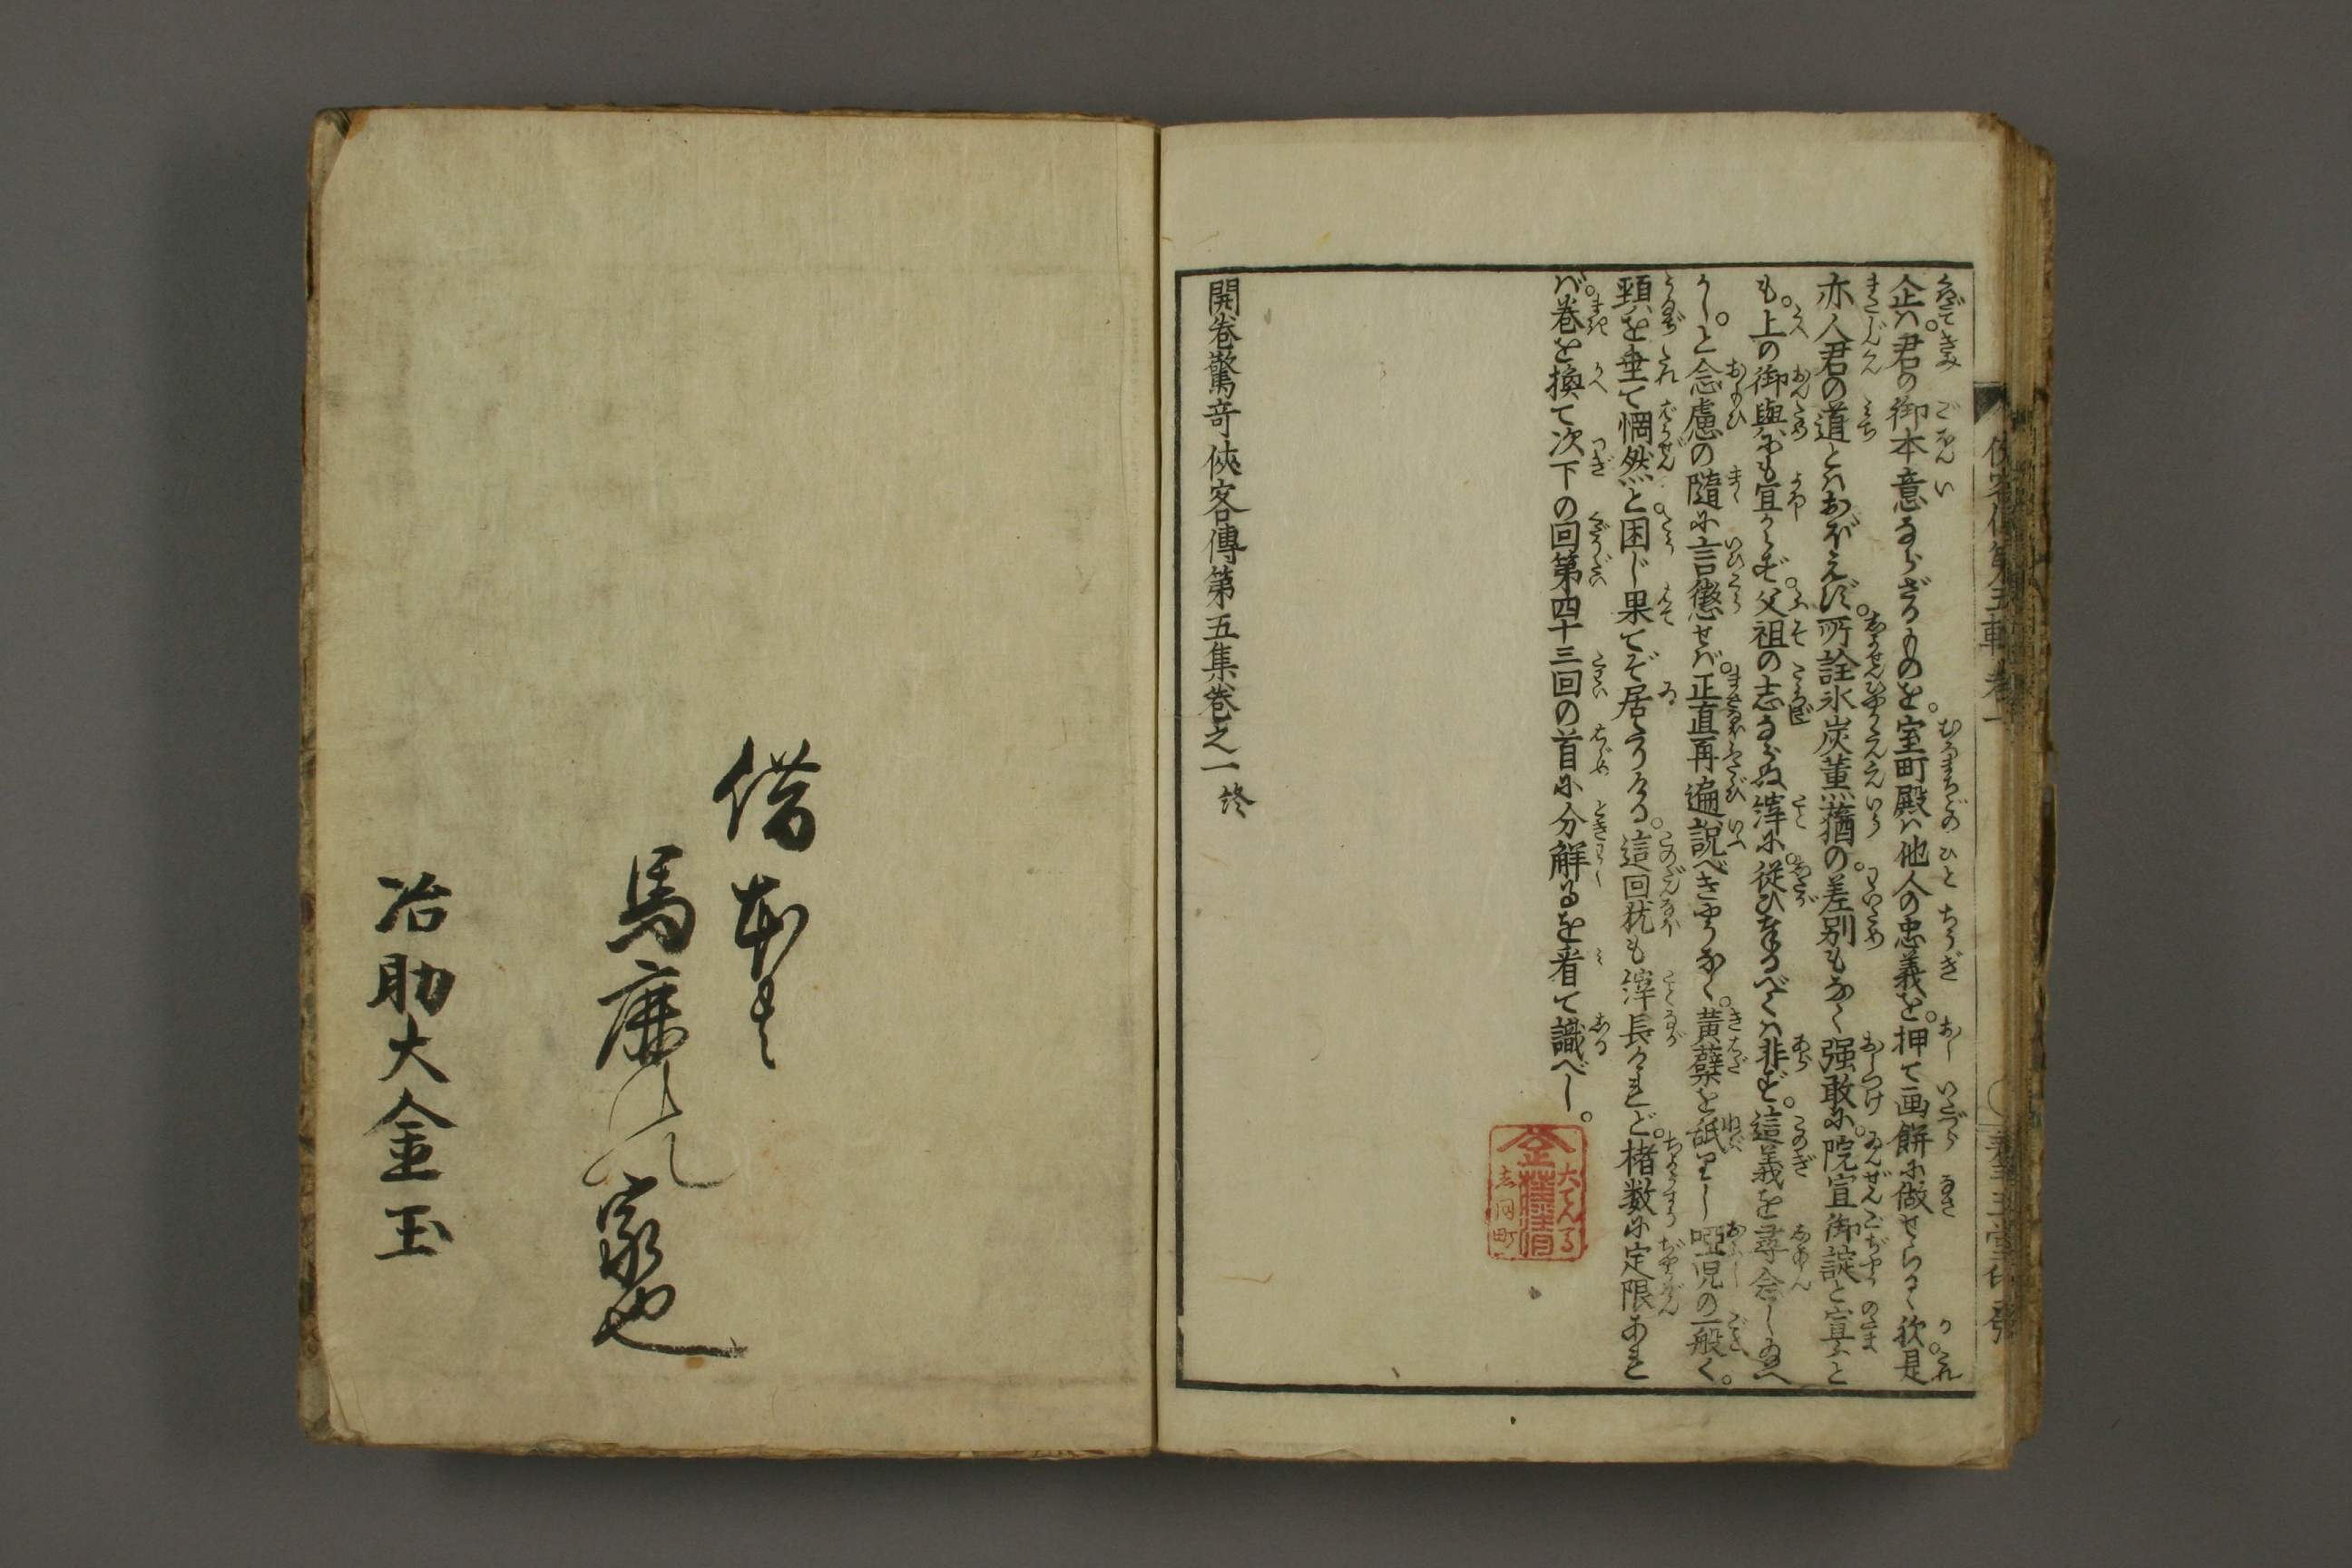 亽止ハ。君の御本意ならざるものを。室町殿ハ他人の忠義を。押て画餅に做せらるゝ欤。是
亦人君の道とハおぼえず。所詮氷炭薫蕕の。差別もなく強敢に。院宣御諚と宣ふと
も。上の御與にも宜からず。父祖の志ならぬ。縡に従ひ奉るべくハ非ず。這義を尋念し給へ
かし。と念慮の隨に言懲せバ。正直再遍説べきやうなく。黄蘗を舐りし。啞児の一般く。
頸を垂て惘然と。困じ果てぞ居たりける。這回猶も縡長かれど。楮数に定限あれ
バ。巻を換て次下の回第四十三回の首に分解るを看て識べし。
開巻驚竒俠客傳第五集巻之一終
大てんま
金藤清
志同町
借本
馬鹿
家也
冶助大金玉